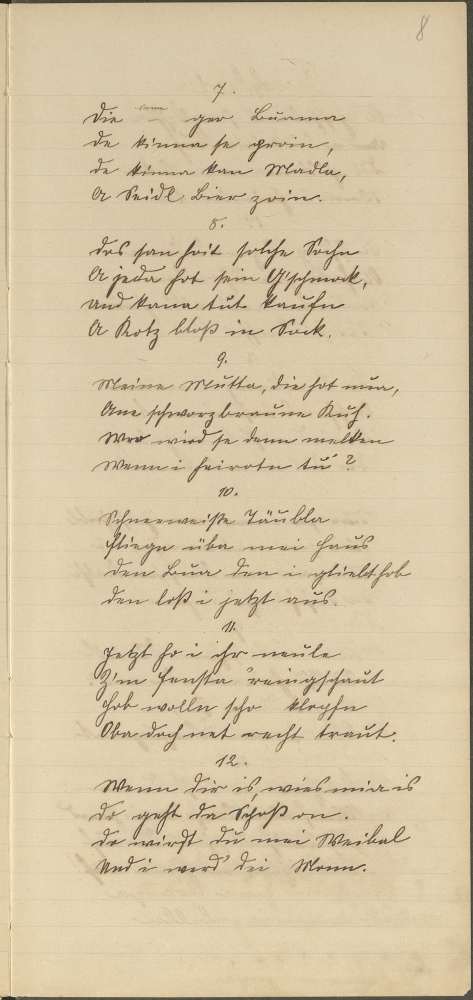 8
7.
Die ger Buama
De kinna se gfrein,
De kinna kan Madla,
A Seidl Bier zoin.
8.
Dos san hoit solche Sochn
A jeda hot sein G'schmock,
Und kana tut kaufn
A Kotz bloß in Sock.
9.
Meine Mutta, die hot nua,
Ane schworzbraune Kuh.
Wer wird se denn melken
Wenn i heiratn tu?
10.
Schneeweiße Täubla
Fliegn üba mei Haus
Den Bua den i gliebt hob
Den loß i jetzt aus.
11.
Jetzt ho i ihr neule
Z'm Fensta reingschaut
Hob wolln scho klopfn
Oba doch net recht traut.
12.
Wenn dir is, wies mia is
Do geht da Schoß on.
Do wirst du mei Weibal
Und i werd' dei Monn.